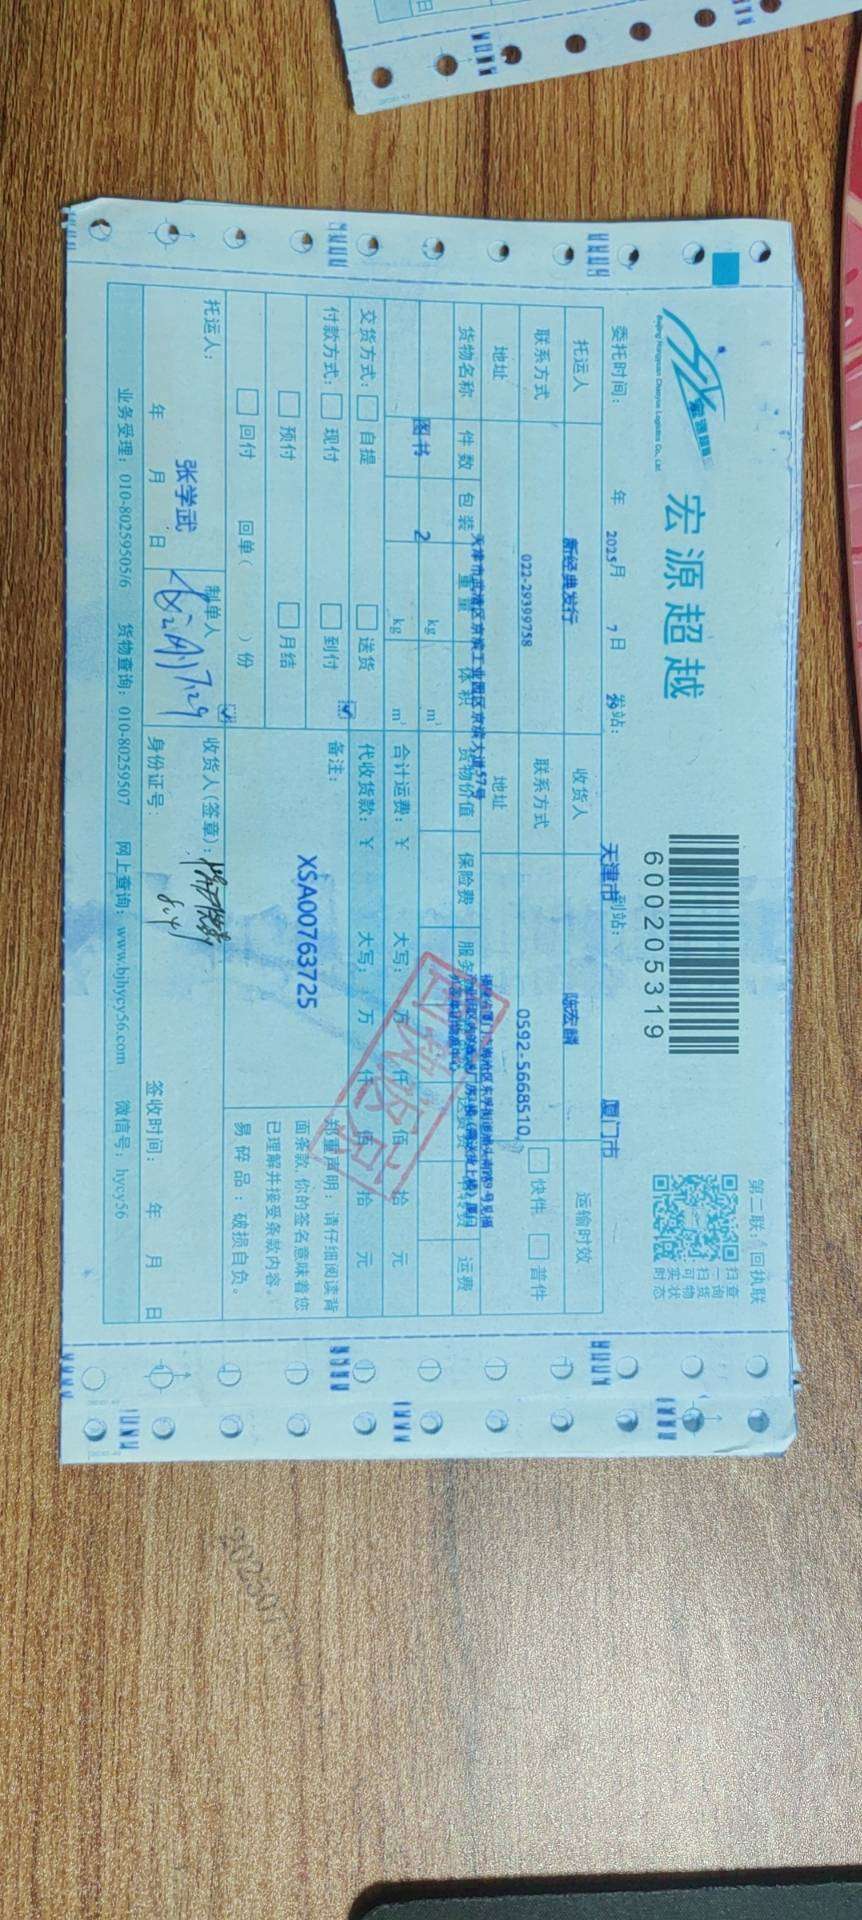 第二联：回执联
宏源超越
Beijing Hongyuan Chaoyue Logistics Co., Ltd.
600205319
扫一扫可实时
查询货物状态
委托时间： 2025 年 7 月 29 日 发站： 天津市 到站： 厦门市
托运人 新经典发行 收货人 陈宏麟 运输时效
联系方式 022-29399758 联系方式 0592-5668510 快件 普件
地址 天津市武清区京滨工业园区京滨大道57号 地址
货物名称 件数 包装 重量 体积 货物价值 保险费 运费
图书 2 kg m³
kg m³ 合计运费：￥ 大写： 万 仟 佰 拾 元
交货方式： 自提 送货 代收货款：￥ 大写： 万 仟 佰 拾 元
付款方式： 现付 到付 备注：
预付 月结 XSA00763725
回付 回单（ ）份
郑重声明：请仔细阅读背
面条款，你的签名意味着您
已理解并接受条款内容。
易碎品：破损自负。
托运人： 张学武 制单人 收货人(签章)：
年 月 日 7.29 身份证号： 签收时间： 年 月 日
业务受理：010-80259505/6 货物查询：010-80259507 网上查询：www.bjhycy56.com 微信号：hycy56